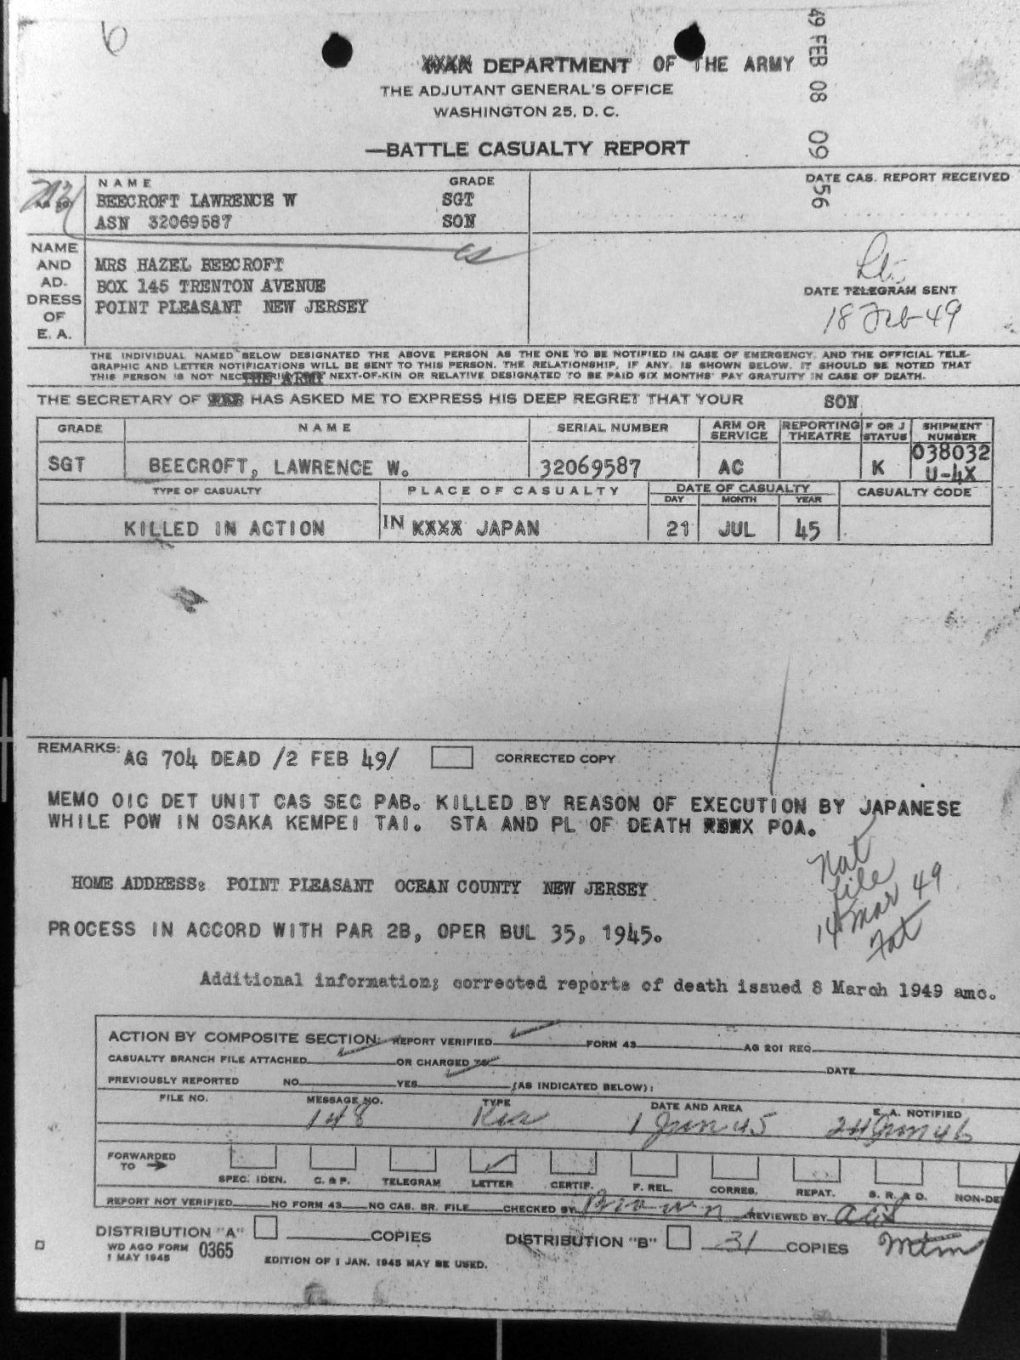 6
49 FEB 08 09 56
XXXX DEPARTMENT OF THE ARMY
THE ADJUTANT GENERAL'S OFFICE
WASHINGTON 25, D. C.
—BATTLE CASUALTY REPORT
DATE CAS. REPORT RECEIVED
NAME GRADE
BEECROFT LAWRENCE W SGT
ASN 32069587 SON
NAME AND AD-DRESS OF E. A.
MRS HAZEL BEECROFT
BOX 145 TRENTON AVENUE
POINT PLEASANT NEW JERSEY
DATE TELEGRAM SENT
18 Feb 49
THE INDIVIDUAL NAMED BELOW DESIGNATED THE ABOVE PERSON AS THE ONE TO BE NOTIFIED IN CASE OF EMERGENCY, AND THE OFFICIAL TELE-
GRAPHIC AND LETTER NOTIFICATIONS WILL BE SENT TO THIS PERSON. THE RELATIONSHIP, IF ANY, IS SHOWN BELOW. IT SHOULD BE NOTED THAT
THIS PERSON IS NOT NECESSARILY THE NEXT-OF-KIN OR RELATIVE DESIGNATED TO BE PAID SIX MONTHS' PAY GRATUITY IN CASE OF DEATH.
THE ARMY
THE SECRETARY OF WAR HAS ASKED ME TO EXPRESS HIS DEEP REGRET THAT YOUR SON
GRADE NAME SERIAL NUMBER ARM OR SERVICE REPORTING THEATRE F OR J STATUS SHIPMENT NUMBER
SGT BEECROFT, LAWRENCE W. 32069587 AC K 038032 U-4X
TYPE OF CASUALTY PLACE OF CASUALTY DATE OF CASUALTY CASUALTY CODE
DAY MONTH YEAR
KILLED IN ACTION IN XXXX JAPAN 21 JUL 45
REMARKS: AG 704 DEAD /2 FEB 49/ CORRECTED COPY
MEMO OIC DET UNIT CAS SEC PAB. KILLED BY REASON OF EXECUTION BY JAPANESE
WHILE POW IN OSAKA KEMPEI TAI. STA AND PL OF DEATH POA.
Not
file
14 Mar 49
HOME ADDRESS: POINT PLEASANT OCEAN COUNTY NEW JERSEY
PROCESS IN ACCORD WITH PAR 2B, OPER BUL 35, 1945.
Additional information; corrected reports of death issued 8 March 1949 amc.
ACTION BY COMPOSITE SECTION: REPORT VERIFIED FORM 43 AG 201 REQ
CASUALTY BRANCH FILE ATTACHED OR CHARGED TO DATE
PREVIOUSLY REPORTED NO YES (AS INDICATED BELOW):
FILE NO. MESSAGE NO. TYPE DATE AND AREA E. A. NOTIFIED
148 Kia 1 Jun 45 24 Jun 46
FORWARDED TO
SPEC. IDEN. C. & P. TELEGRAM LETTER CERTIF. F. REL. CORRES. REPAT. S. R. & D. NON-DE
REPORT NOT VERIFIED NO FORM 43 NO CAS. BR. FILE CHECKED BY Brown REVIEWED BY
DISTRIBUTION "A" COPIES DISTRIBUTION "B" 31 COPIES
WD AGO FORM 0365
1 MAY 1945
EDITION OF 1 JAN. 1945 MAY BE USED.